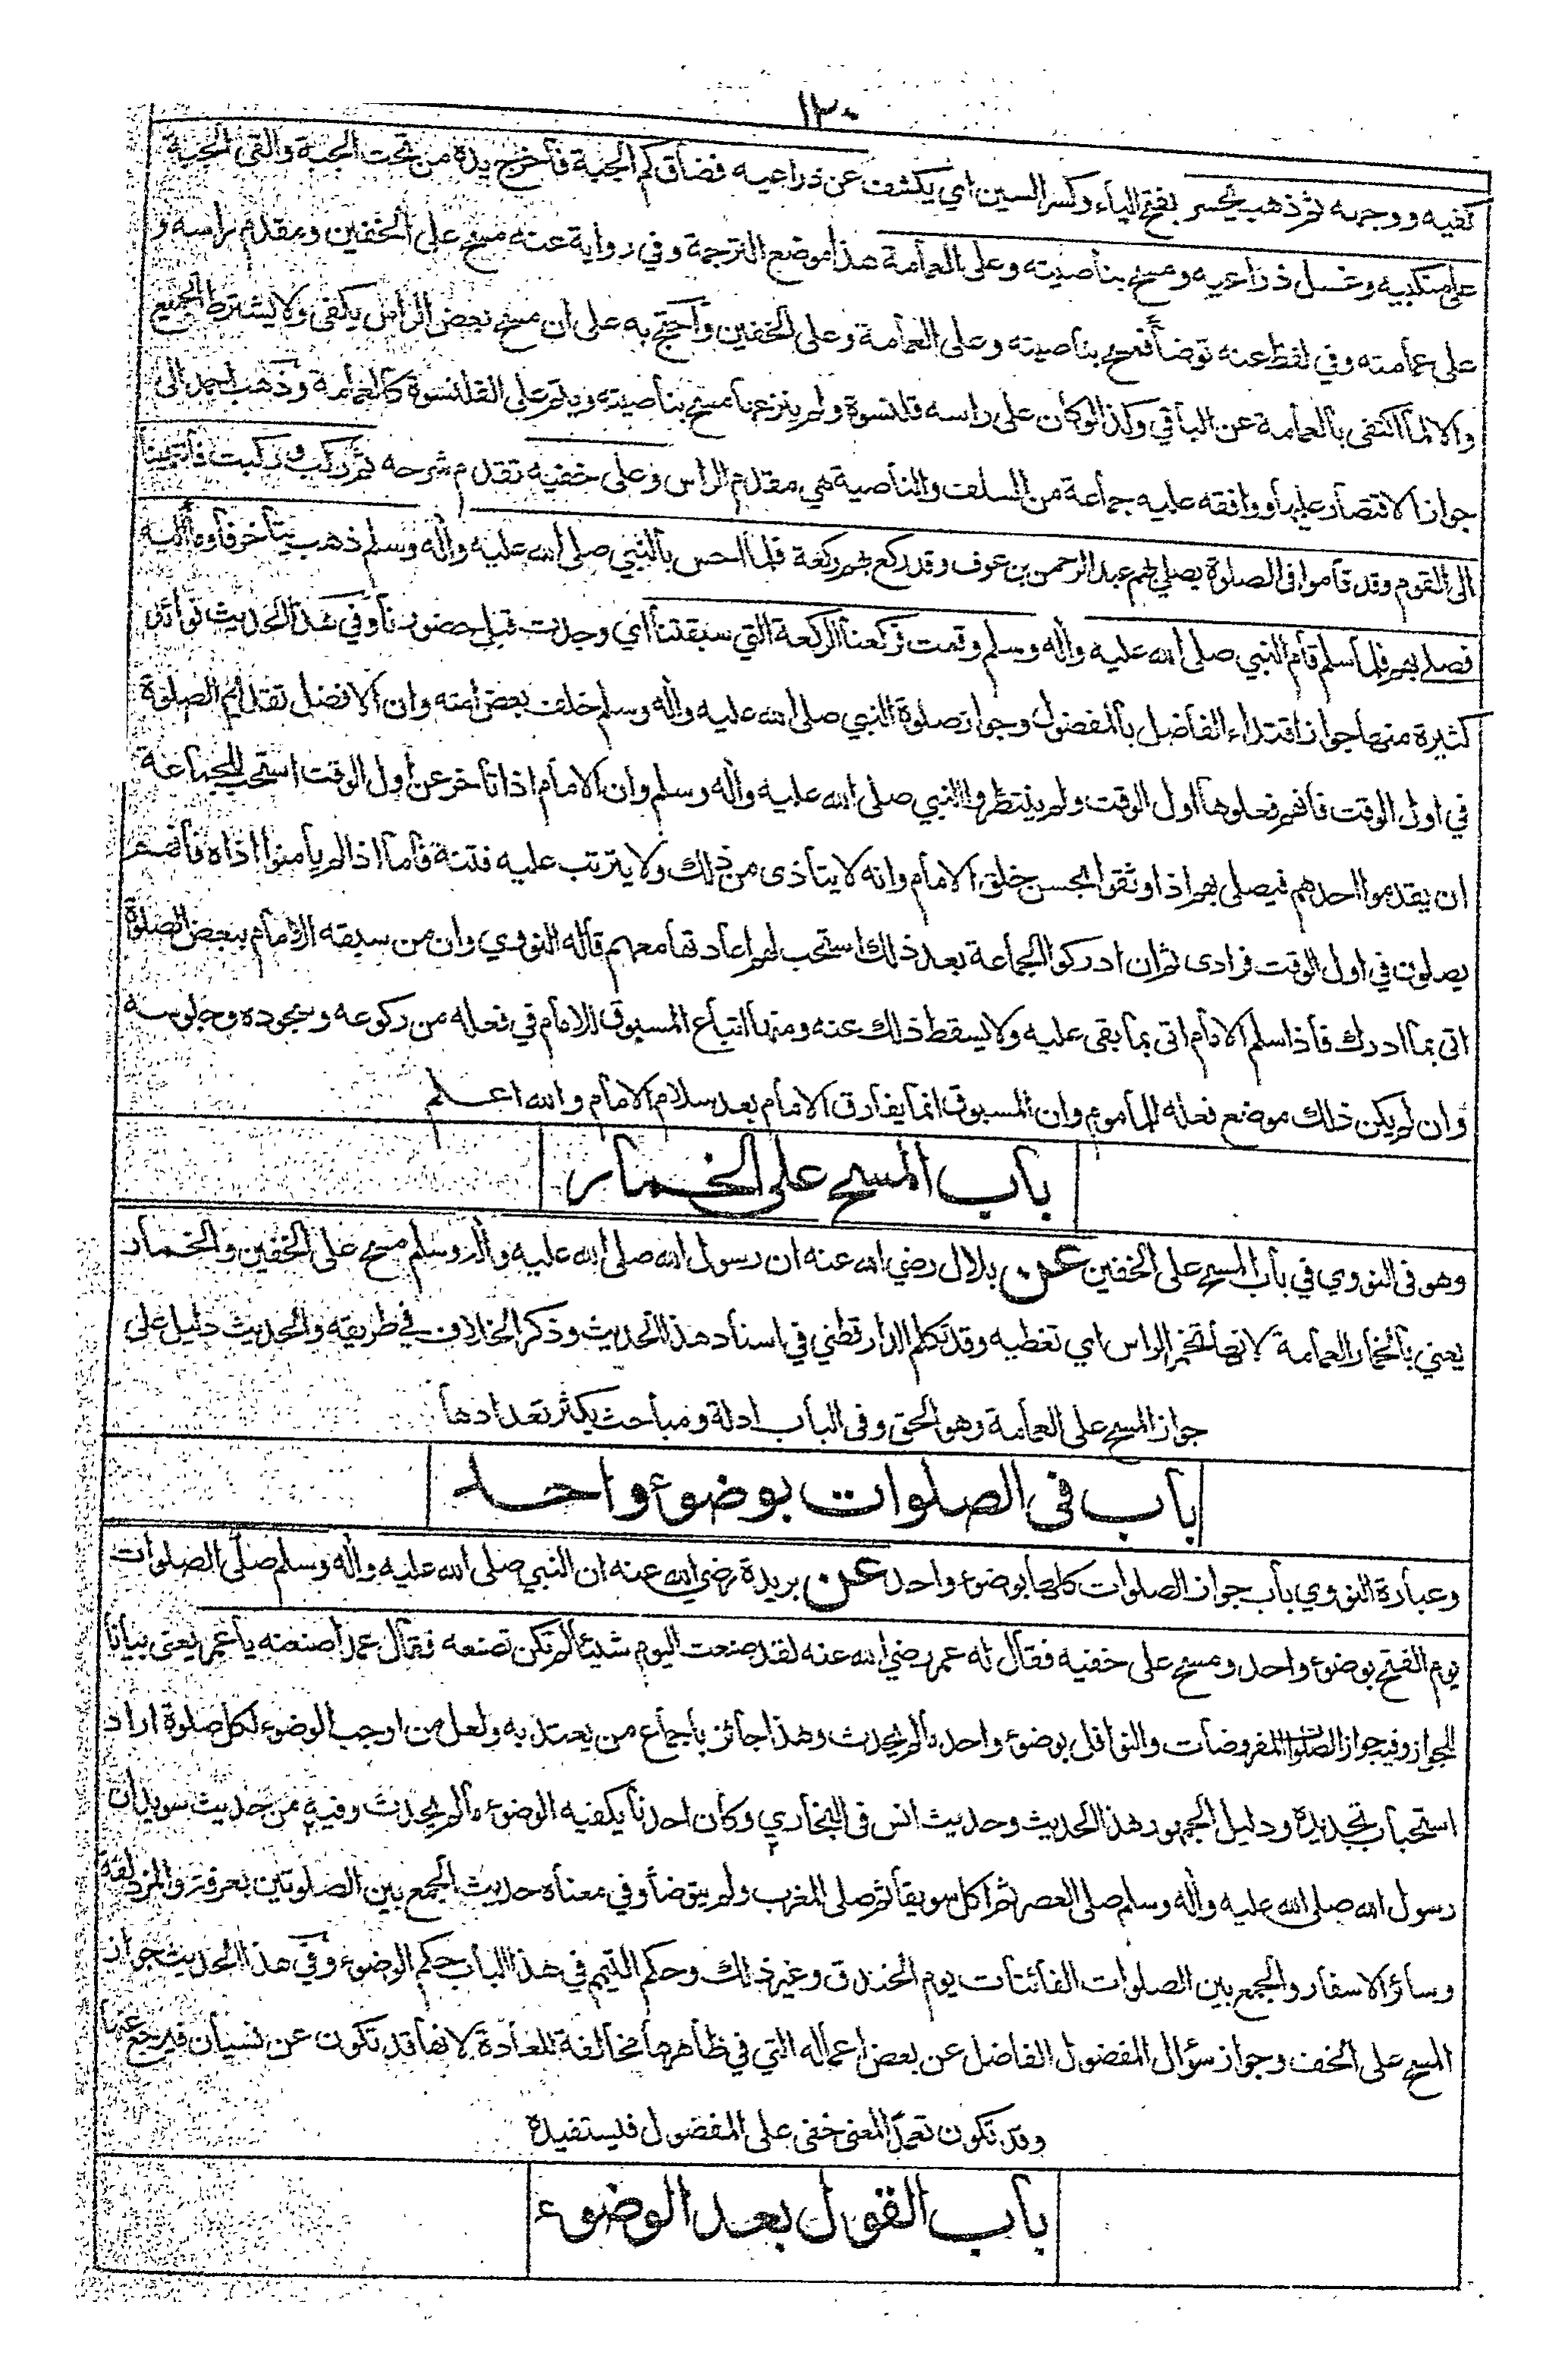 ١٣٠
كفيه ووجهه ثم ذهب يحسر بفتح الياء وكسر السين اي يكشف عن ذراعيه فضاق كم الجبة فاخرج يده من تحت الجبة والقى الجبة
على منكبيه وغسل ذراعيه ومسح بناصيته وعلى العمامة هذا موضع الترجمة وفي رواية عنه مسح على الخفين ومقدم راسه و
على عمامته وفي لفظ عنه توضأ فمسح بناصيته وعلى العمامة وعلى الخفين واحتج به على ان مسح بعض الراس يكفى ولا يشترط الجميع
والا لما اكتفى بالعمامة عن الباقي وكذا لوكان على راسه قلنسوة ولم ينزعها مسح بناصيته ويتم على القلنسوة كالعمامة وذهب احمد الى
جواز الاقتصار عليها ووافقه عليه جماعة من السلف والناصية هي مقدم الراس وعلى خفيه تقدم شرحه ثم ركب وركبت فانتهينا
الى القوم وقد قاموا فى الصلوة يصلي بهم عبد الرحمن بن عوف وقد ركع بهم ركعة فلما احس بالنبي صلى الله عليه واٰله وسلم ذهب يتأخر فأومأ اليه
فصلى بهم فلما سلم قام النبي صلى الله عليه واٰله وسلم وقمت فركعنا الركعة التي سبقتنا اي وجدت قبل حضورنا وفي هذا الحديث فوائد
كثيرة منها جواز اقتداء الفاضل بالمفضول وجواز صلوة النبي صلى الله عليه واٰله وسلم خلف بعض امته وان الافضل تقديم الصلوة
في اول الوقت فانهم فعلوها اول الوقت ولم ينتظروا النبي صلى الله عليه واٰله وسلم وان الامام اذا تأخر عن اول الوقت استحب للجماعة
ان يقدموا احدهم فيصلى بهم اذا وثقوا بحسن خلق الامام وانه لا يتأذى من ذلك ولا يترتب عليه فتنة فاما اذا لم يأمنوا اذاه فانهم
يصلون في اول الوقت فرادى ثم ان ادركوا الجماعة بعد ذلك استحب لهم اعادتها معهم قاله النووي وان من سبقه الامام ببعض الصلوة
اتى بما ادرك فاذا سلم الامام اتى بما بقى عليه ولا يسقط ذلك عنه ومنها اتباع المسبوق للامام في فعله من ركوعه وسجوده وجلوسه
وان لم يكن ذلك موضع فعله للماموم وان المسبوق انما يفارق الامام بعد سلام الامام والله اعلم
باب المسح على الخمار
وهو فى النووي في باب المسح على الخفين عن بلال رضي الله عنه ان رسول الله صلى الله عليه واٰله وسلم مسح على الخفين والخمار
يعني بالخمار العمامة لانها تخمر الراس اي تغطيه وقد تكلم الدارقطني في اسناد هذا الحديث وذكر الخلاف في طريقه والحديث دليل على
جواز المسح على العمامة وهو الحق وفى الباب ادلة ومباحث يكثر تعدادها
باب فى الصلوات بوضوء واحد
وعبارة النووي باب جواز الصلوات كلها بوضوء واحد عن بريدة رضي الله عنه ان النبي صلى الله عليه واٰله وسلم صلّى الصلوات
يوم الفتح بوضوء واحد ومسح على خفيه فقال له عمر رضي الله عنه لقد صنعت اليوم شيئا لم تكن تصنعه فقال عمدا صنعته يا عمر يعنى بيانا
للجواز وفيه جواز الصلوات المفروضات والنوافل بوضوء واحد مالم يحدث وهذا جائز باجماع من يعتد به ولعل من اوجب الوضوء لكل صلوة اراد
استحباب تجديده ودليل الجمهور هذا الحديث وحديث انس فى البخاري وكان احدنا يكفيه الوضوء مالم يحدث وفيه من حديث سويد ان
رسول الله صلى الله عليه واٰله وسلم صلى العصر ثم اكل سويقا ثم صلى المغرب ولم يتوضأ وفي معناه حديث الجمع بين الصلوتين بعرفة والمزدلفة
وسائر الاسفار والجمع بين الصلوات الفائتات يوم الخندق وغير ذلك وحكم التيمم في هذا الباب حكم الوضوء وفي هذا الحديث جواز
المسح على الخف وجواز سؤال المفضول الفاضل عن بعض اعماله التي في ظاهرها مخالفة للعادة لانها قد تكون عن نسيان فيرجع عنها
وقد تكون تعمدا لمعنى خفى على المفضول فيستفيده
باب القول بعد الوضوء